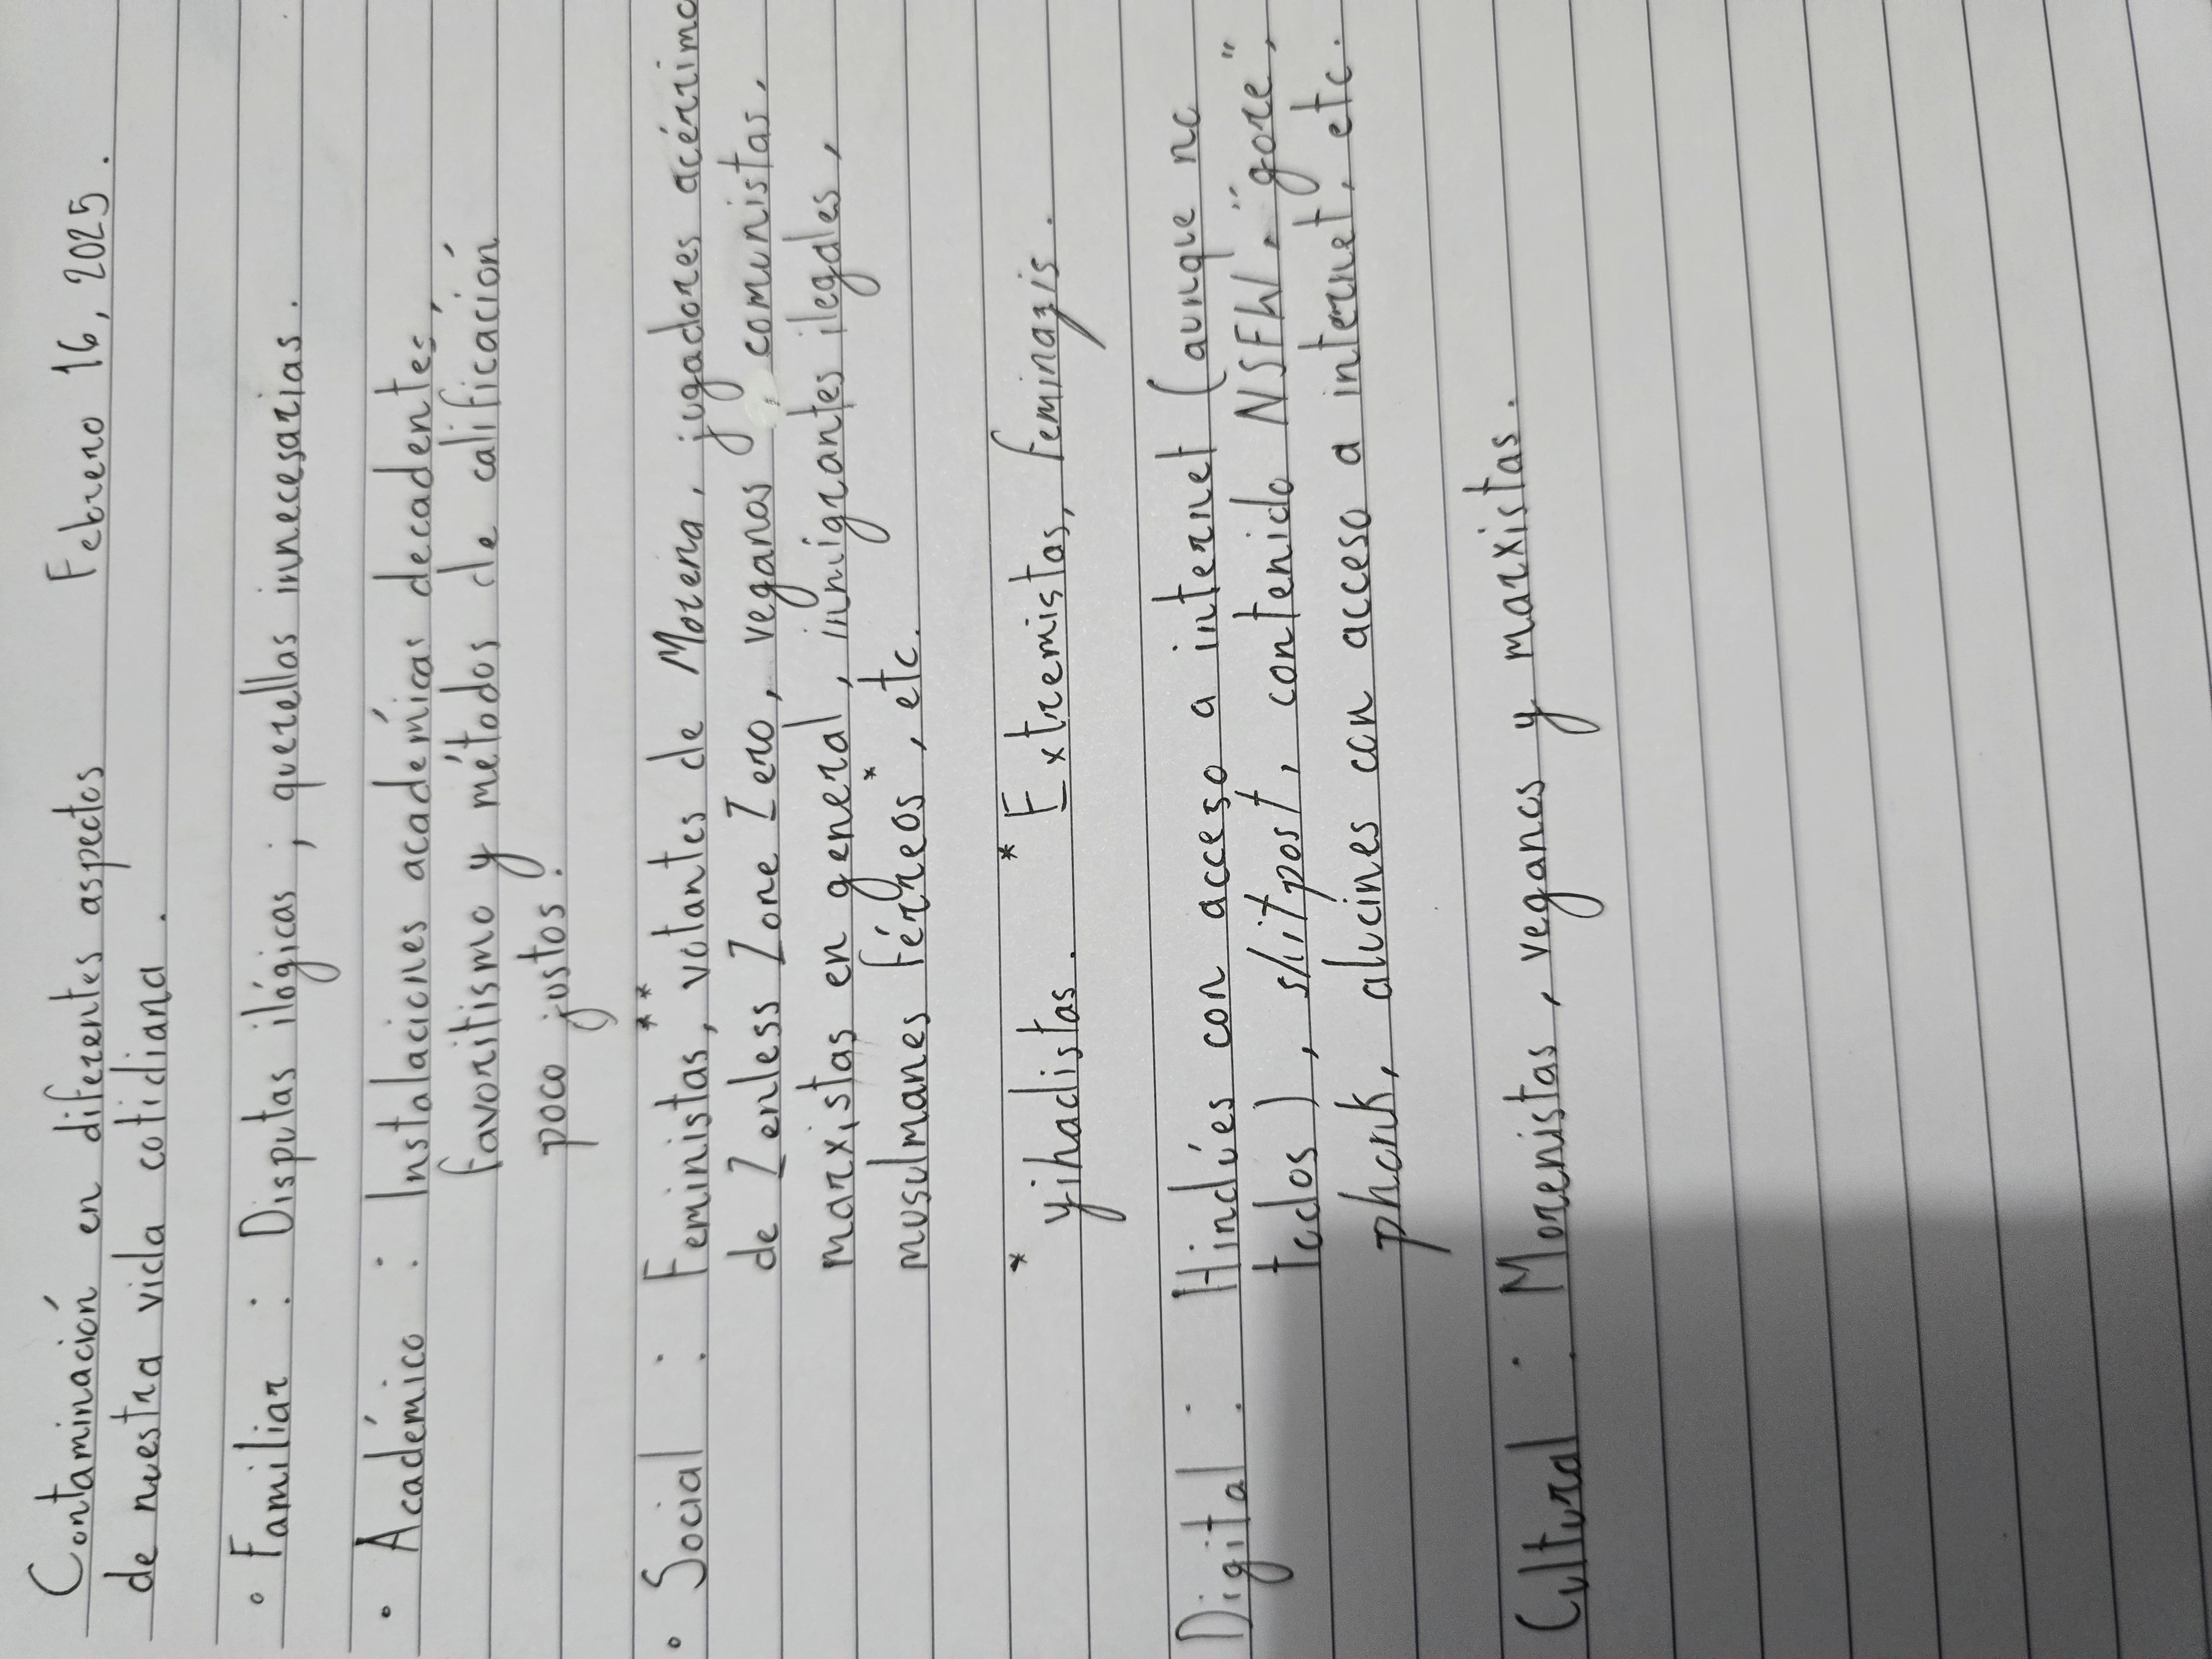 Febrero 16, 2025.
Contaminación en diferentes aspectos
de nuestra vida cotidiana.
• Familiar : Disputas ilógicas ; querellas innecesarias.
• Académico : Instalaciones académicas decadentes,
favoritismo y métodos de calificación
poco justos.
• Social : Feministas,** votantes de Morena, jugadores acérrimo
de Zenless Zone Zero, veganos, comunistas,
marxistas en general, inmigrantes ilegales,
musulmanes férreos*, etc.
* yihadistas. ** Extremistas, feminazis.
Digital : Hindúes con acceso a internet (aunque no
todos), shitpost, contenido NSFW, "gore",
phonk, alucines con acceso a internet, etc.
Cultural : Morenistas, veganos y marxistas.